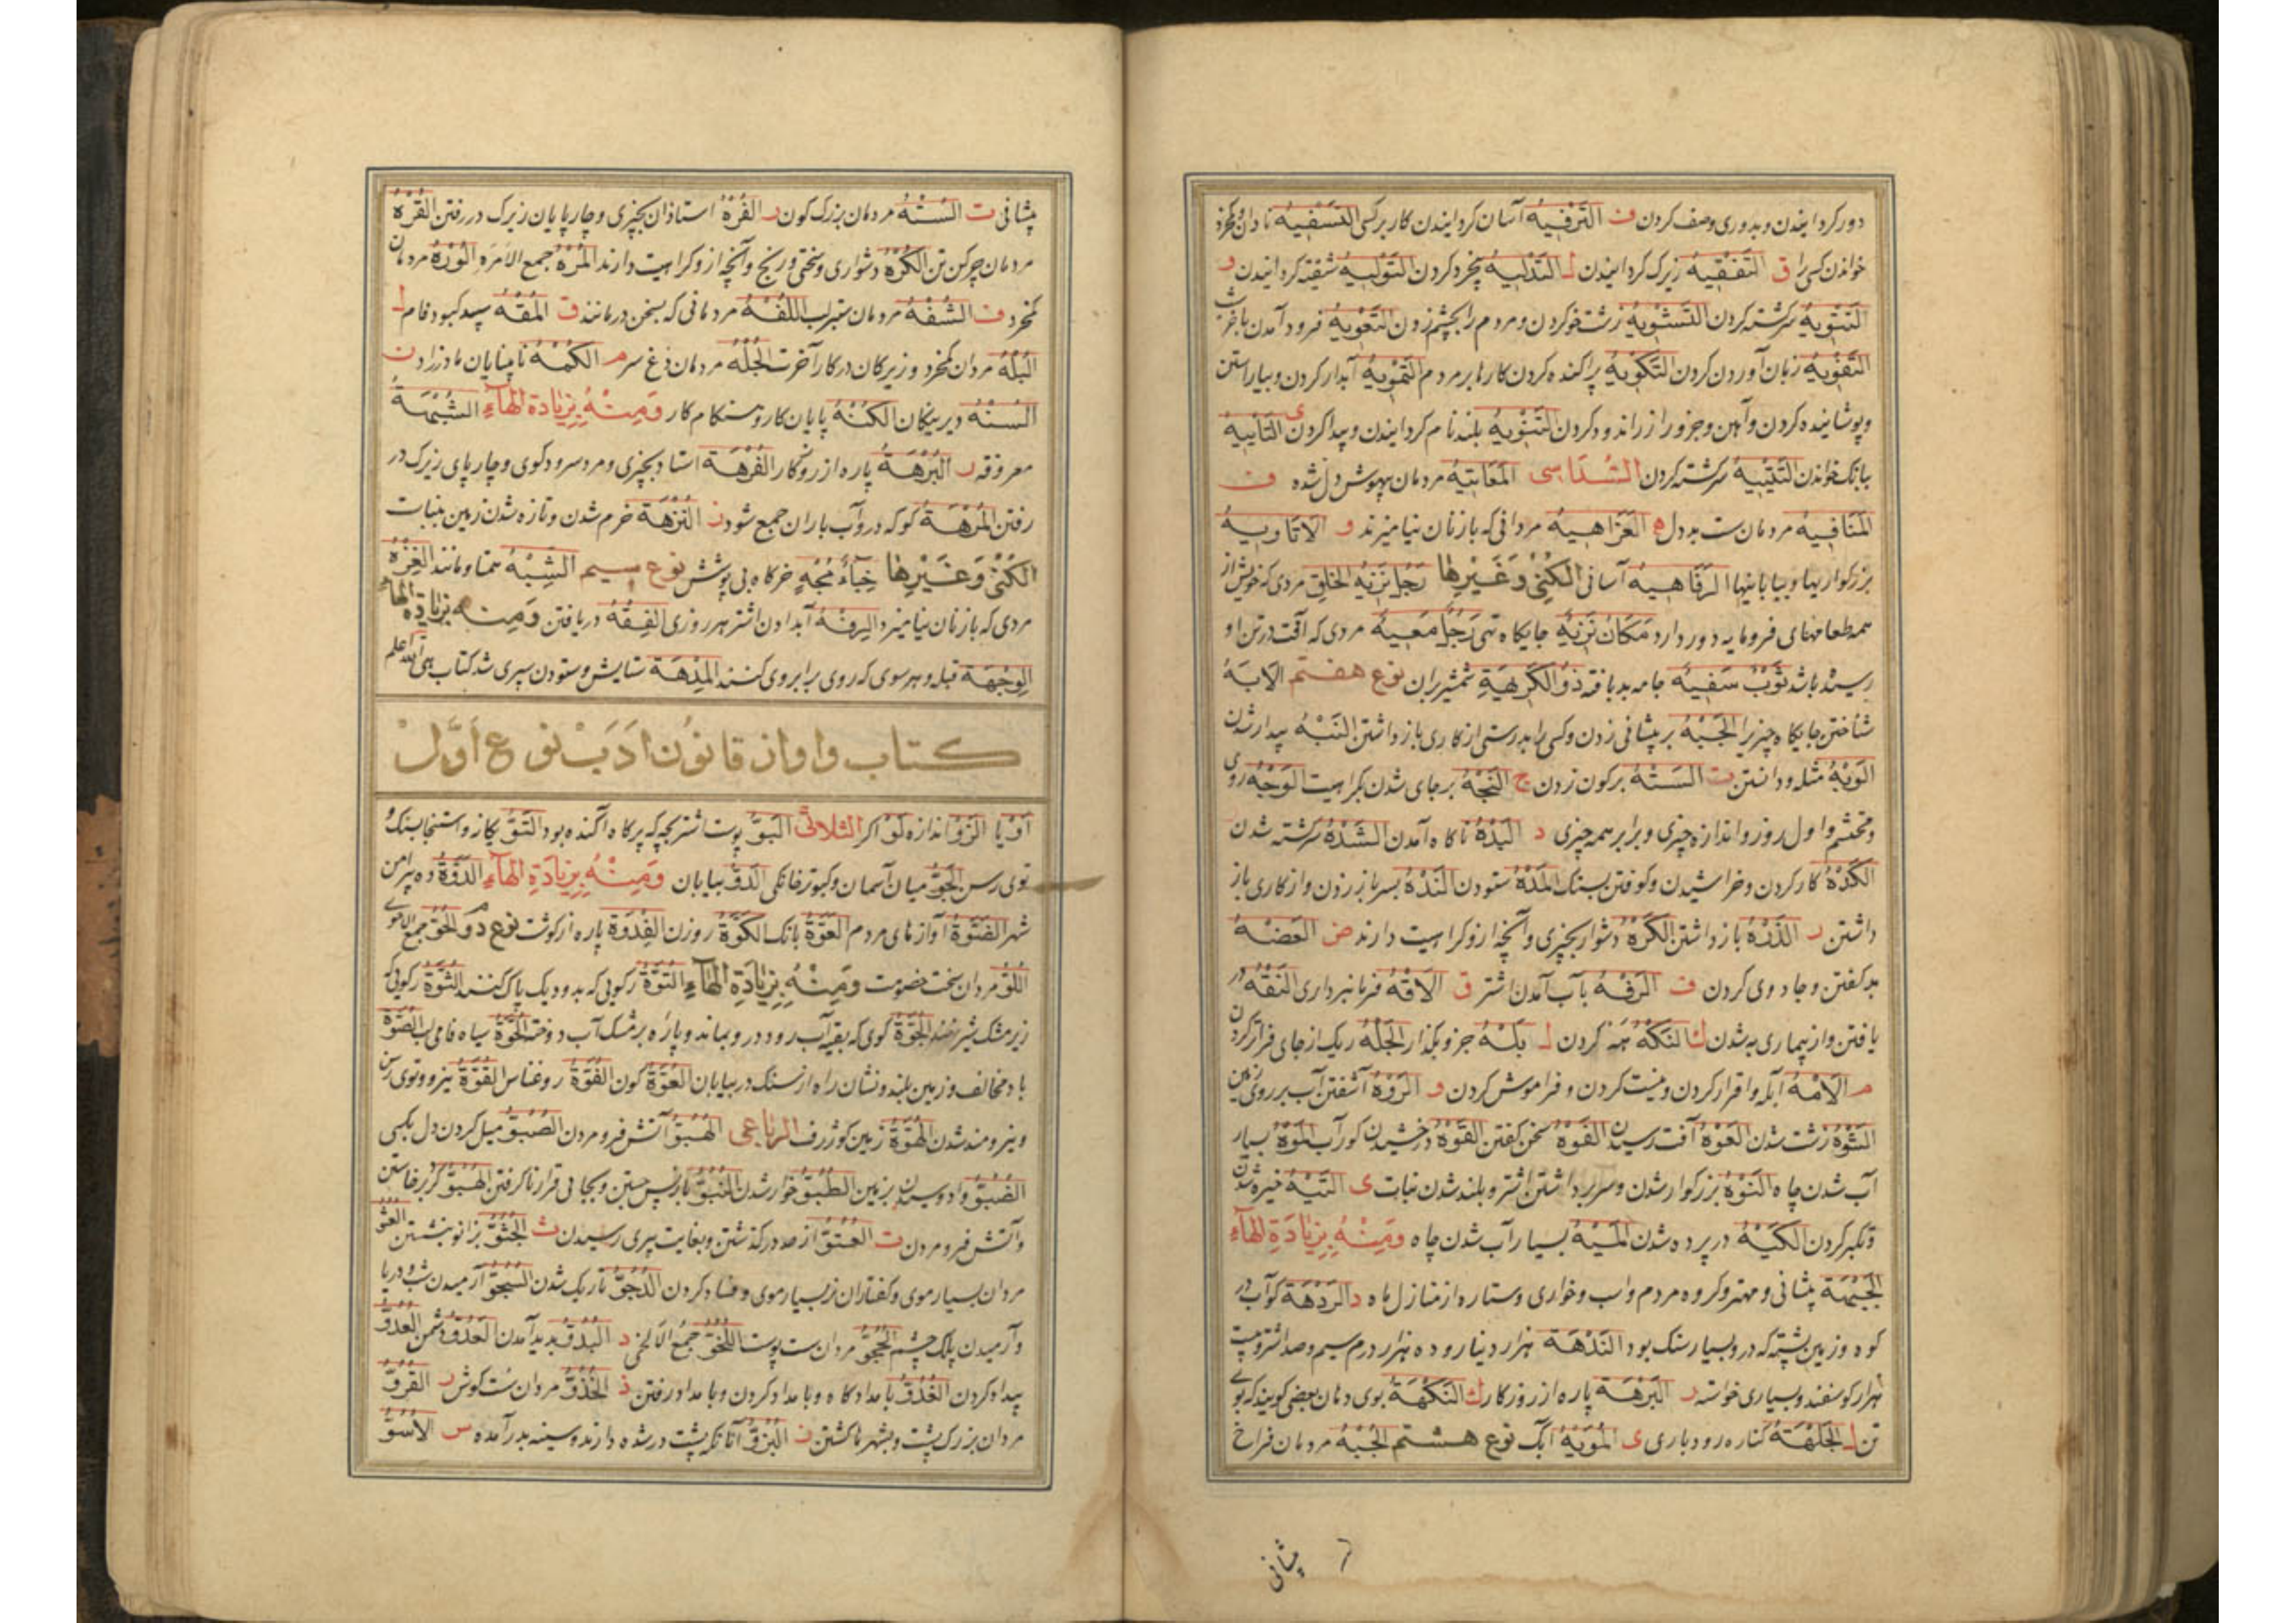 دور کردانیدن و بدوری وصف کردن ف التَرفیهُ آسان کردانیدن کار بر کسی التَسفیهُ نادان و کم‌خرد
خواندن کسی را ق التَفقیهُ زیرک کردانیدن ل التَدلیهُ بیخرد کردن التَولیهُ شیفته کردانیدن و
التَتویهُ سرکشته کردن التَشویهُ زشت خو کردن و مردم را بچشم زدن التَعویهُ فرود آمدن باخر شب
التَفویهُ زبان آوردن کردن التَکویهُ پراکنده کردن کارها بر مردم التَمویهُ آبدار کردن و بیاراستن
و پوشانیده کردن و آهن و جز ورا زر اندود کردن التَنویهُ بلند نام کردانیدن و پیدا کردن ی التَأییهُ
ببانک خواندن التَتییهُ سرکشته کردن السُداسی المَعاتیهُ مردمان بیهوش دل شده ف
المَنافیهُ مردمان ست بددل ه العَزاهیهُ مردانی که با زنان نیامیزند و الاتاویهُ
بزرکواریها و بیابانها الرَفاهیهُ آسانی الکُنی وَغَیرها رَجُل نَزیهُ الخلق مردی که خویش از
همه طعامهای فرومایه دور دارد مَکانٌ نَزیهٌ جایکاه تهی رَجُلٌ مَعیهٌ مردی که آفت در تن او
رسیده باشد ثَوبٌ سَفیهٌ جامه بد بافته ذو الکَریهةِ شمشیر بران نوع هفتم الابهُ
شناختن جایکاه چیزیرا الجَبهُ بر پیشانی زدن و کسی را بدرستی از کاری باز داشتن النَبهُ بیدار شدن
الوَبهُ مثله و دانستن ت السَتهُ بر کون زدن ج النَجهُ بر جای شدن بکراهیت الوَجهُ روی
و محتشم و اول روز و اندازه چیزی و برابر همه چیزی د البَدهُ ناکاه آمدن الشَدهُ سرکشته شدن
الکَدهُ کار کردن و خراشیدن و کوفتن بسنک المَدهُ ستودن النَدهُ بسر باز زدن و از کاری باز
داشتن ر الذَرهُ باز داشتن الکَرهُ دشوار چیزی و آنچه ازو کراهیت دارند ض العَضهُ
بد کفتن و جادوی کردن ف الرَفهُ بآب آمدن اشتر ق الاقهُ فرمانبرداری النَقهُ در
یافتن و از بیماری به شدن ک النَکهُ هَه کردن ل بَلهُ جز و بکذار الجَلهُ ریک از جای فراز کردن
م الامهُ آبله و اقرار کردن و نیست کردن و فراموش کردن و الرَوهُ آشفتن آب بر روی زمین
الشَوهُ زشت شدن العَوهُ آفت رسیدن الفَوهُ سخن کفتن القَوهُ درخشیدن کورآب المَوهُ بسیار
آب شدن چاه النَوهُ بزرکوار شدن و سر برداشتن اشتر و بلند شدن نبات ی التَیهُ خیره شدن
و تکبر کردن الکَیهُ در پرده شدن المَیهُ بسیار آب شدن چاه وَمِنهُ بِزیادَةِ الهاءِ
الجَبهَة پیشانی و مهتر و کروه مردم و اسب و خواری و ستاره از منازل ماه د الرَدهَة کوآب در
کوه و زمین پشته که درو بسیار سنک بود النَدهَة هزار دینار و ده هزار درم سیم و صد اشتر و بیست
هزار کوسفند و بسیاری خواسته ر البَرهَة پاره از روزکار ک النَکهَة بوی دهان بعضی کویند که بوی
تن ل الجَلهَة کناره رودباری ی المُویَهُ آبک نوع هشتم الجُبهُ مردمان فراخ
پیشانی
پیشانی ت السُتهُ مردمان بزرک کون ر الفُرهُ استاذان بچیزی و چارپایان زیرک در رفتن القُرهُ
مردمان چرکن تن الکُرهُ دشواری و سختی و رنج و آنچه ازو کراهیت دارند المُرهُ جمع الامَره الوُرهُ مردمان
کم‌خرد ف الشُفهُ مردمان ستبر لب اللُفهُ مردمانی که بسخن درمانند ق المُقهُ سپید کبود فام ل
البُلهُ مردان کم‌خرد و زیرکان در کار آخرت الجُلهُ مردمان دغ سر م الکُمهُ نابینایان مادرزاد ن
السُنهُ دیرینکان الکُنهُ پایان کار و هنکام کار وَمِنهُ بِزیادة الهاءِ الشُبهَةُ
معروفة ر البُرهَةُ پاره از روزکار الفُرهَة استاد بچیزی و مرد سرودکوی و چارپای زیرک در
رفتن المُرهَة کو که درو آب باران جمع شود ن النُزهَة خرم شدن و تازه شدن زمین بنبات
الکُنی وَغَیرها خِباءٌ مُجهٍ خرکاه بی پوشش نوع سیم الشِبهُ همتا و مانند العِزهُ
مردی که با زنان نیامیزد الرِفهُ آبدادن اشتر هر روزی الفِقهُ دریافتن وَمِنه بزیادة الهاء
الوِجهَة قبله و هر سوی که روی برابر وی کنند المِدهَة ستایش و ستودن سپری شد کتاب هی الله اعلم
کتاب واو از قانون ادب نوع اول
اَو یا الزَوّ اندازه لَو اکر الثلاثی البَوّ پوست اشتر بچه که پر کاه آکنده بود التَوّ یکاز و استنجا بسنک و
توی رسن الجَوّ میان آسمان و کبوتر خانکی الدَوّ بیابان وَمِنهُ بِزیادَةِ الهاءِ الدَوَّةُ ده پیرامن
شهر الضَوَّة آوازهای مردم العَوَّة بانک الکَوَّة روزن الفِدوَة پاره از کوشت نوع دوم الحُوّ جمع الاحوی
اللُوّ مردان سخت خصومت وَمِنهُ بِزیادَةِ الهاءِ التُوَّة رکویی که بدو دیک پاک کنند الثُوَّة رکویی که
زیر مشک شیر نهند الجُوَّة کوی که بقیه آب رود درو بماند و پاره بر مشک آب دوخته الحُوَّة سیاه فامی لب الصُوَّة
باد مخالف و زمین بلند و نشان راه از سنک در بیابان العُوَّة کون الفُوَّة روغناس القُوَّة نیرو و توی رسن
و نیرومند شدن الهُوَّة زمین کو ژرف الرباعی الهُبُوّ آتش فرو مردن الصُبُوّ میل کردن دل بکسی
وآتش فرو مردن ت العُتُوّ از حد در کذشتن و بغایت پیری رسیدن ث الجُثُوّ بزانو بنشستن العُثُو
مردان بسیار موی و کفتاران نر بسیار موی و فساد کردن الدُجُوّ تاریک شدن السُجُوّ آرمیدن شب و دریا
و آرمیدن پلک چشم مردان ست پوست اللُخُوّ جمع الالخی د البُدُوّ پدید آمدن العَدُوّ دشمن العُدُوّ
بیداد کردن الغُدُوّ بامداد کاه و بامداد کردن و بامداد رفتن ذ الخُذُوّ مردان ست کوش ر القُروّ
مردان بزرک پشت و بشهرها کشتن ز البُزُوّ آنانکه پشت در شده دارند و سینه بدر آمده س الاسُوّ